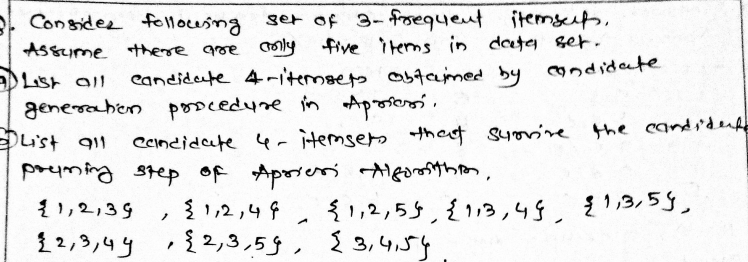 . Consider following set of 3-frequent itemsets.
Assume there are only five items in data set.
a) List all candidate 4-itemsets obtained by candidate
generation procedure in Apriori.
b) List all candidate 4-itemsets that survive the candidate
pruning step of Apriori Algorithm.
{1,2,3}, {1,2,4}, {1,2,5}, {1,3,4}, {1,3,5},
{2,3,4}, {2,3,5}, {3,4,5}